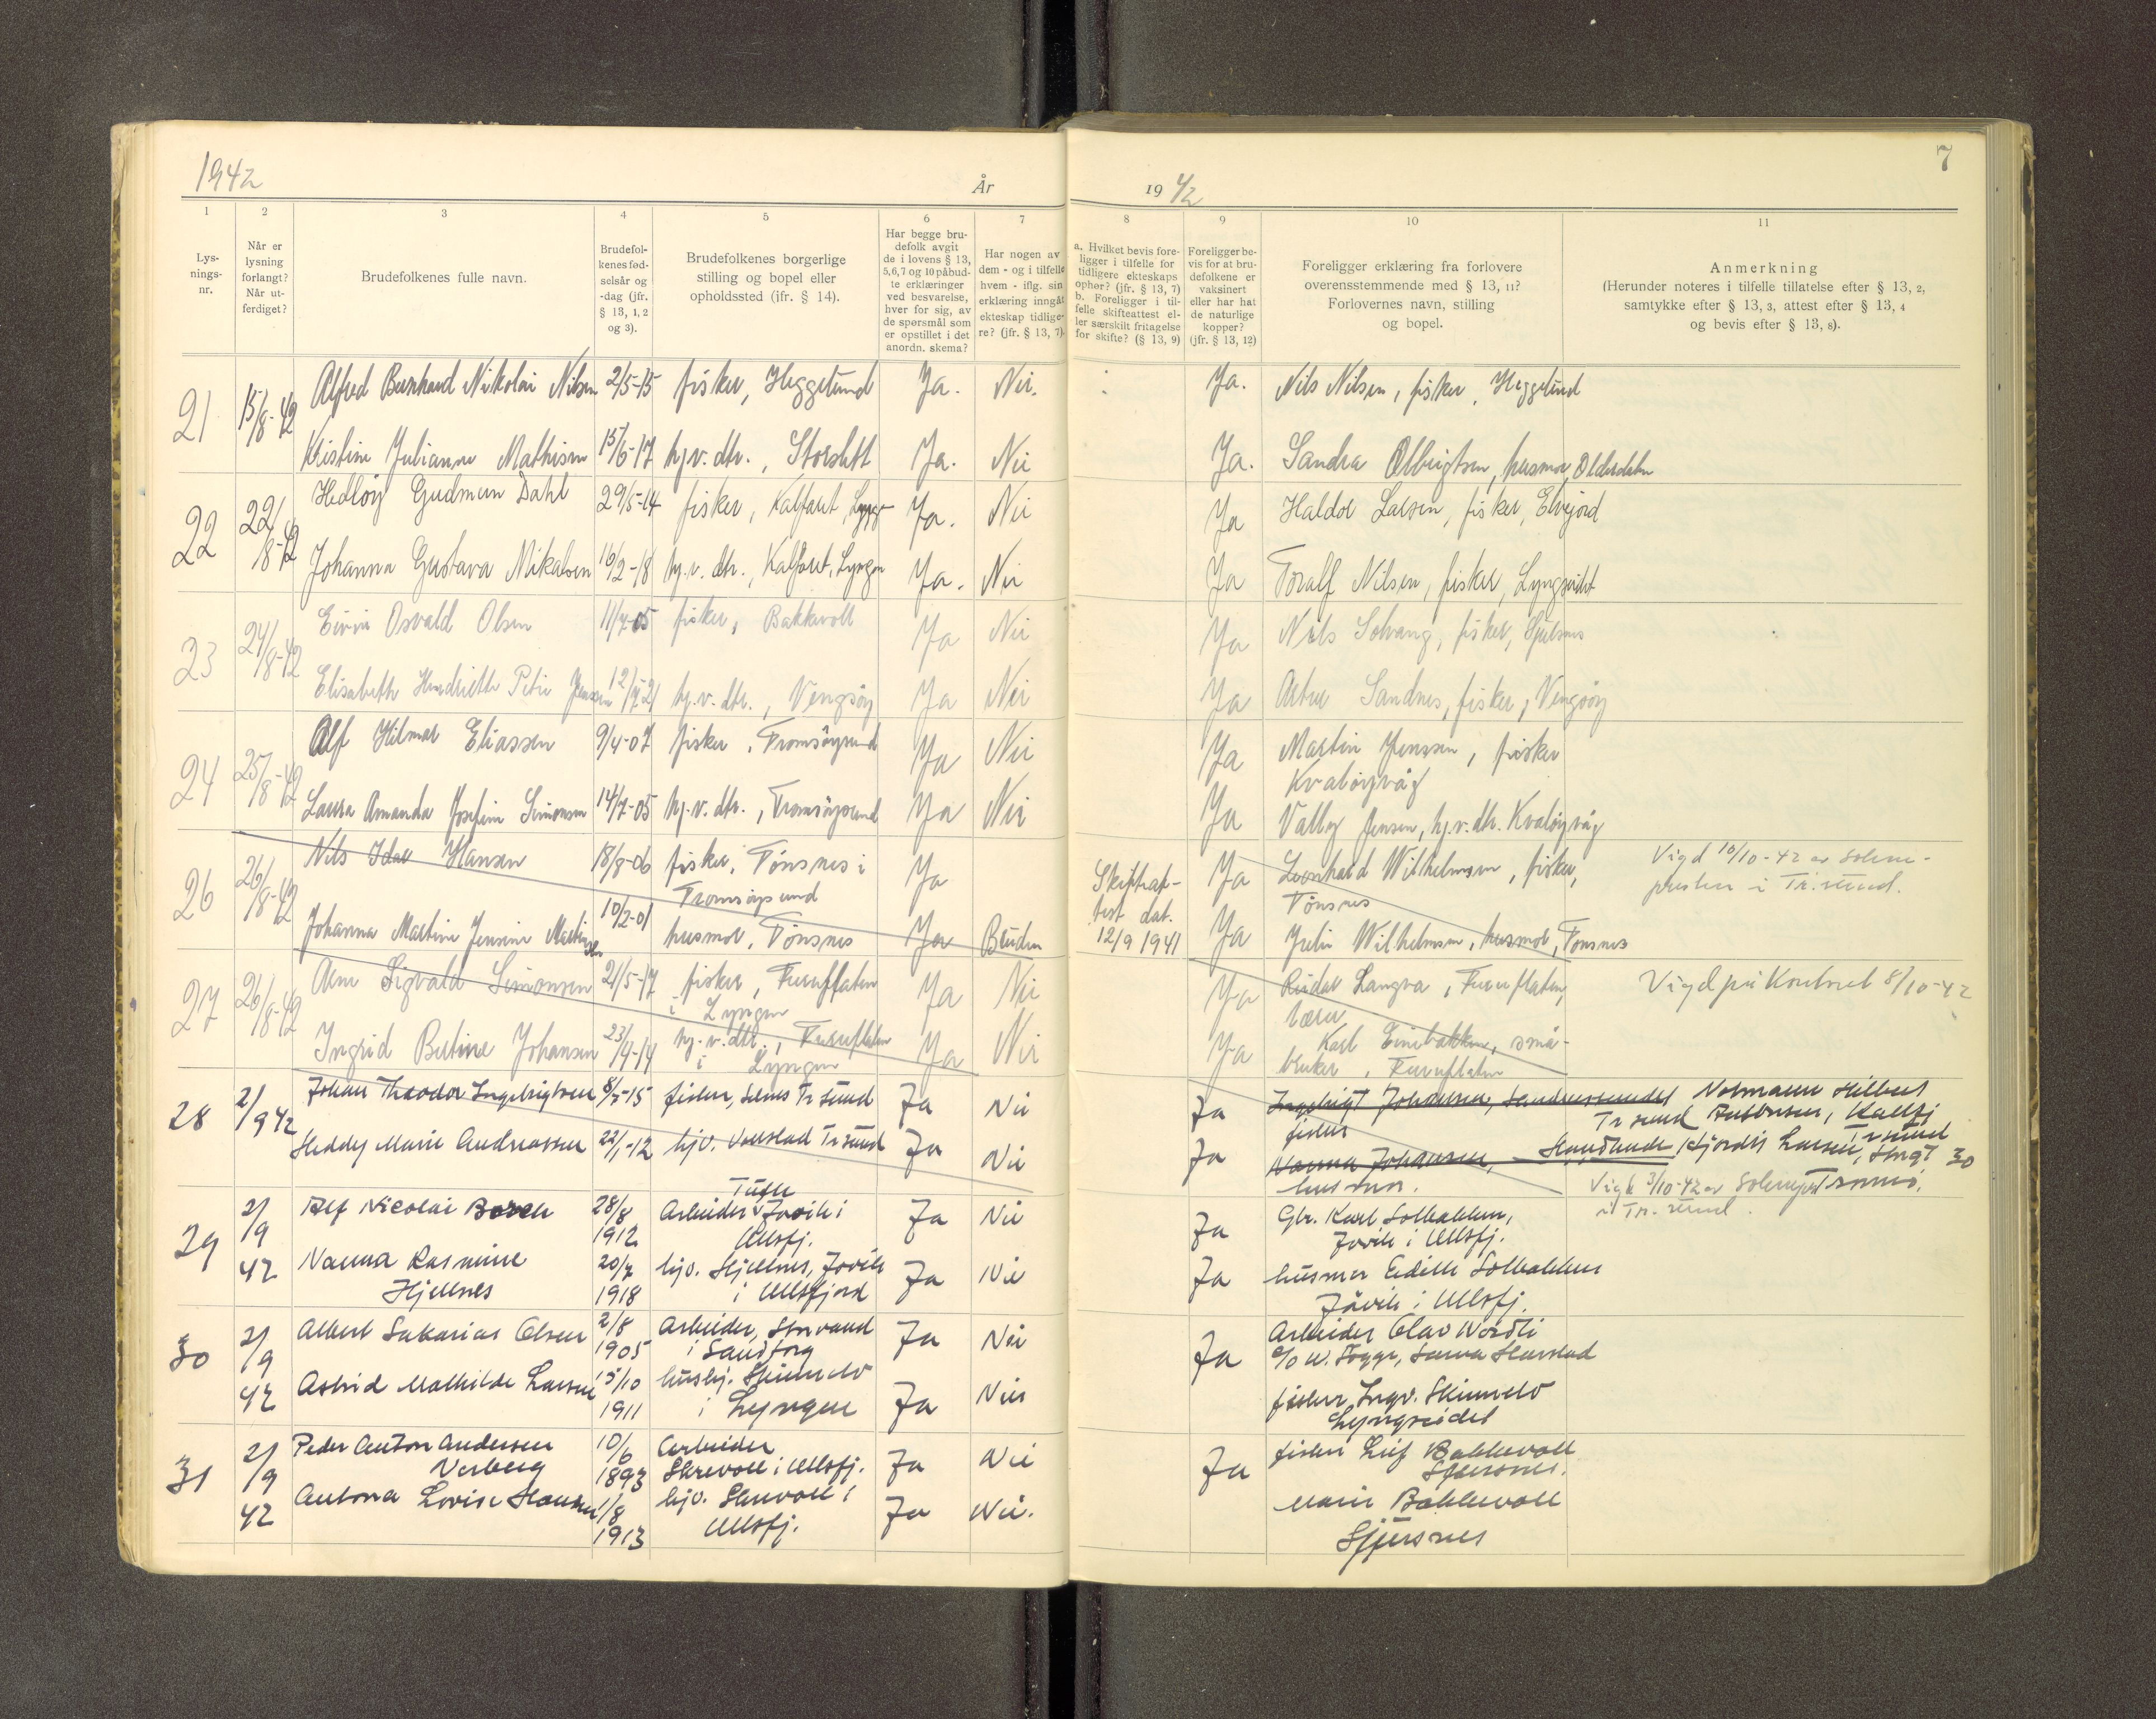 1942
År
19 42
7
1
2
3
4
5
6
7
8
9
10
11
Lys-
nings-
nr.
Når er
lysning
forlangt?
Når ut-
ferdiget?
Brudefolkenes fulle navn.
Brudefol-
kenes fød-
selsår og
-dag (jfr.
§ 13, 1, 2
og 3).
Brudefolkenes borgerlige
stilling og bopel eller
opholdssted (ifr. § 14).
Har begge bru-
defolk avgit
de i lovens § 13,
5,6,7 og 10 påbud-
te erklæringer
ved besvarelse,
hver for sig, av
de spørsmål som
er opstillet i det
anordn. skema?
Har nogen av
dem - og i tilfelle
hvem - iflg. sin
erklæring inngåt
ekteskap tidlige-
re? (jfr. § 13, 7)
a. Hvilket bevis fore-
ligger i tilfelle for
tidligere ekteskaps
ophør? (jfr. § 13, 7)
b. Foreligger i til-
felle skifteattest el-
ler særskilt fritagelse
for skifte? (§ 13, 9)
Foreligger be-
vis for at bru-
defolkene er
vaksinert
eller har hat
de naturlige
kopper?
(jfr. § 13, 12)
Foreligger erklæring fra forlovere
overensstemmende med § 13, 11?
Forlovernes navn, stilling
og bopel.
Anmerkning
(Herunder noteres i tilfelle tillatelse efter § 13, 2,
samtykke efter § 13, 3, attest efter § 13, 4
og bevis efter § 13, 8).
21 15/8-42 Alfred Bernhard Nikolai Nilsen 2/5-15 fisker, Heggelund Ja. Nei. Ja. Nils Nilsen, fisker, Heggelund
Kristine Julianne Mathisen 15/6-17 hj.v. dtr., Storslett Ja. Nei Ja. Sandra Olbrigtsen, husmor, Olderdalen
22 22/8-42 Hedløy Gudmun Dahl 29/5-14 fisker, Kalfaret, Lyngen Ja. Nei Ja Haldor Larsen, fisker, Elvejord
Johanna Gustava Mikalsen 16/2-18 hj.v. dtr., Kalfaret, Lyngen Ja. Nei Ja Toralf Nilsen, fisker, Lyngseidet
23 24/8-42 Osvald Olsen 11/7-05 fisker, Bakkevoll Ja Nei Ja Nils Solvang, fisker,
Elisabeth Hendriette Petrie Jenssen 12/7-21 hj.v. dtr., Vengsøy Ja Nei Ja Artur Sandnes, fisker, Vengsøy
24 25/8-42 Alf Hilmar Eliassen 9/4-07 fisker, Tromsøysund Ja Nei Ja Martin Jenssen, fisker
Kvaløyvåg
Laura Amanda Josefine Simonsen 14/7-05 hj.v. dtr., Tromsøysund Ja Nei Ja Valby Jensen, hj.v. dtr. Kvaløyvåg
26 26/8-42 Nils Idar Hansen 18/8-06 fisker, Tønsnes i Ja Ja Leonhard Wilhelmsen, fisker, Vigd 10/10-42 av sokne-
Tromsøysund Skifteat- Tønsnes presten i Tr.sund.
Johanna Martine Jensine Martinsen 10/2-01 husmor, Tønsnes Ja Bruden test dat. 12/9 1941 Ja Julie Wilhelmsen, husmor, Tønsnes
27 26/8-42 Arne Sigvald Simonsen 21/5-17 fisker, Furuflaten Ja Nei Ja Reidar Langva, Furuflaten, Vigd på Kontoret 8/10-42
i Lyngen lærer
Ingrid Betine Johansen 23/4-14 hj.v. dtr., Furuflaten Ja Nei Ja Karl Einebakken, små-
i Lyngen bruker, Furuflaten
28 2/9 42 Johan Theodor Ingebrigtsen 8/7-15 fisker, Selnes Tr sund Ja Nei Ja Ingebrigt Johansen, Normann Hilbert
fisker Tr sund Kalfj
Heddy Marie Andreassen 22/1-12 hjv. Tr sund Ja Nei Ja Nanna Johansen, Hjørdis Larsen, Storgt 30
husmor. Tromsø.
Vigd 3/10-42 av Soknepr.
i Tr. sund.
29 2/9 42 Alf Nicolai Borch 28/8 1912 Arbeider, Jøvik i Ja Nei Ja Gbr. Karl Solbakken,
Ullsfj. Jøvik i Ullsfj.
Nanna Rasmine 20/7 1918 hjv. Hjellnes, Jøvik Ja Nei Ja husmor Edith Solbakken
Hjellnes i Ullsfjord Jøvik i Ullsfj.
30 2/9 42 Albert Sakarias Olsen 2/8 1905 Arbeider, Storvand Ja Nei Ja Arbeider Olav Nordli
i Sandtorg c/o W. Harstad
Astrid Mathilde Larsen 15/10 1911 hushj. Skinnelv Ja Nei fisker Ingv. Skinnelv
i Lyngen Lyngseidet
31 2/9 42 Peder Anton Andersen 10/6 1893 Arbeider Ja Nei Ja fisker Leif Bakkevoll
Verberg Skrevoll i Ullsfj. Sjursnes.
Antona Lovise Hansen 1/8 1913 hjv. Skrevoll i Ja Nei. Marie Bakkevoll
Ullsfj. Sjursnes